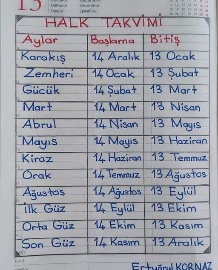 13
HALK TAKVİMİ
Aylar Başlama Bitiş
Karakış 14 Aralık 13 Ocak
Zemheri 14 Ocak 13 Şubat
Gücük 14 Şubat 13 Mart
Mart 14 Mart 13 Nisan
Abrul 14 Nisan 13 Mayıs
Mayıs 14 Mayıs 13 Haziran
Kiraz 14 Haziran 13 Temmuz
Orak 14 Temmuz 13 Ağustos
Ağustos 14 Ağustos 13 Eylül
İlk Güz 14 Eylül 13 Ekim
Orta Güz 14 Ekim 13 Kasım
Son Güz 14 Kasım 13 Aralık
Ertuğrul KORNAZ